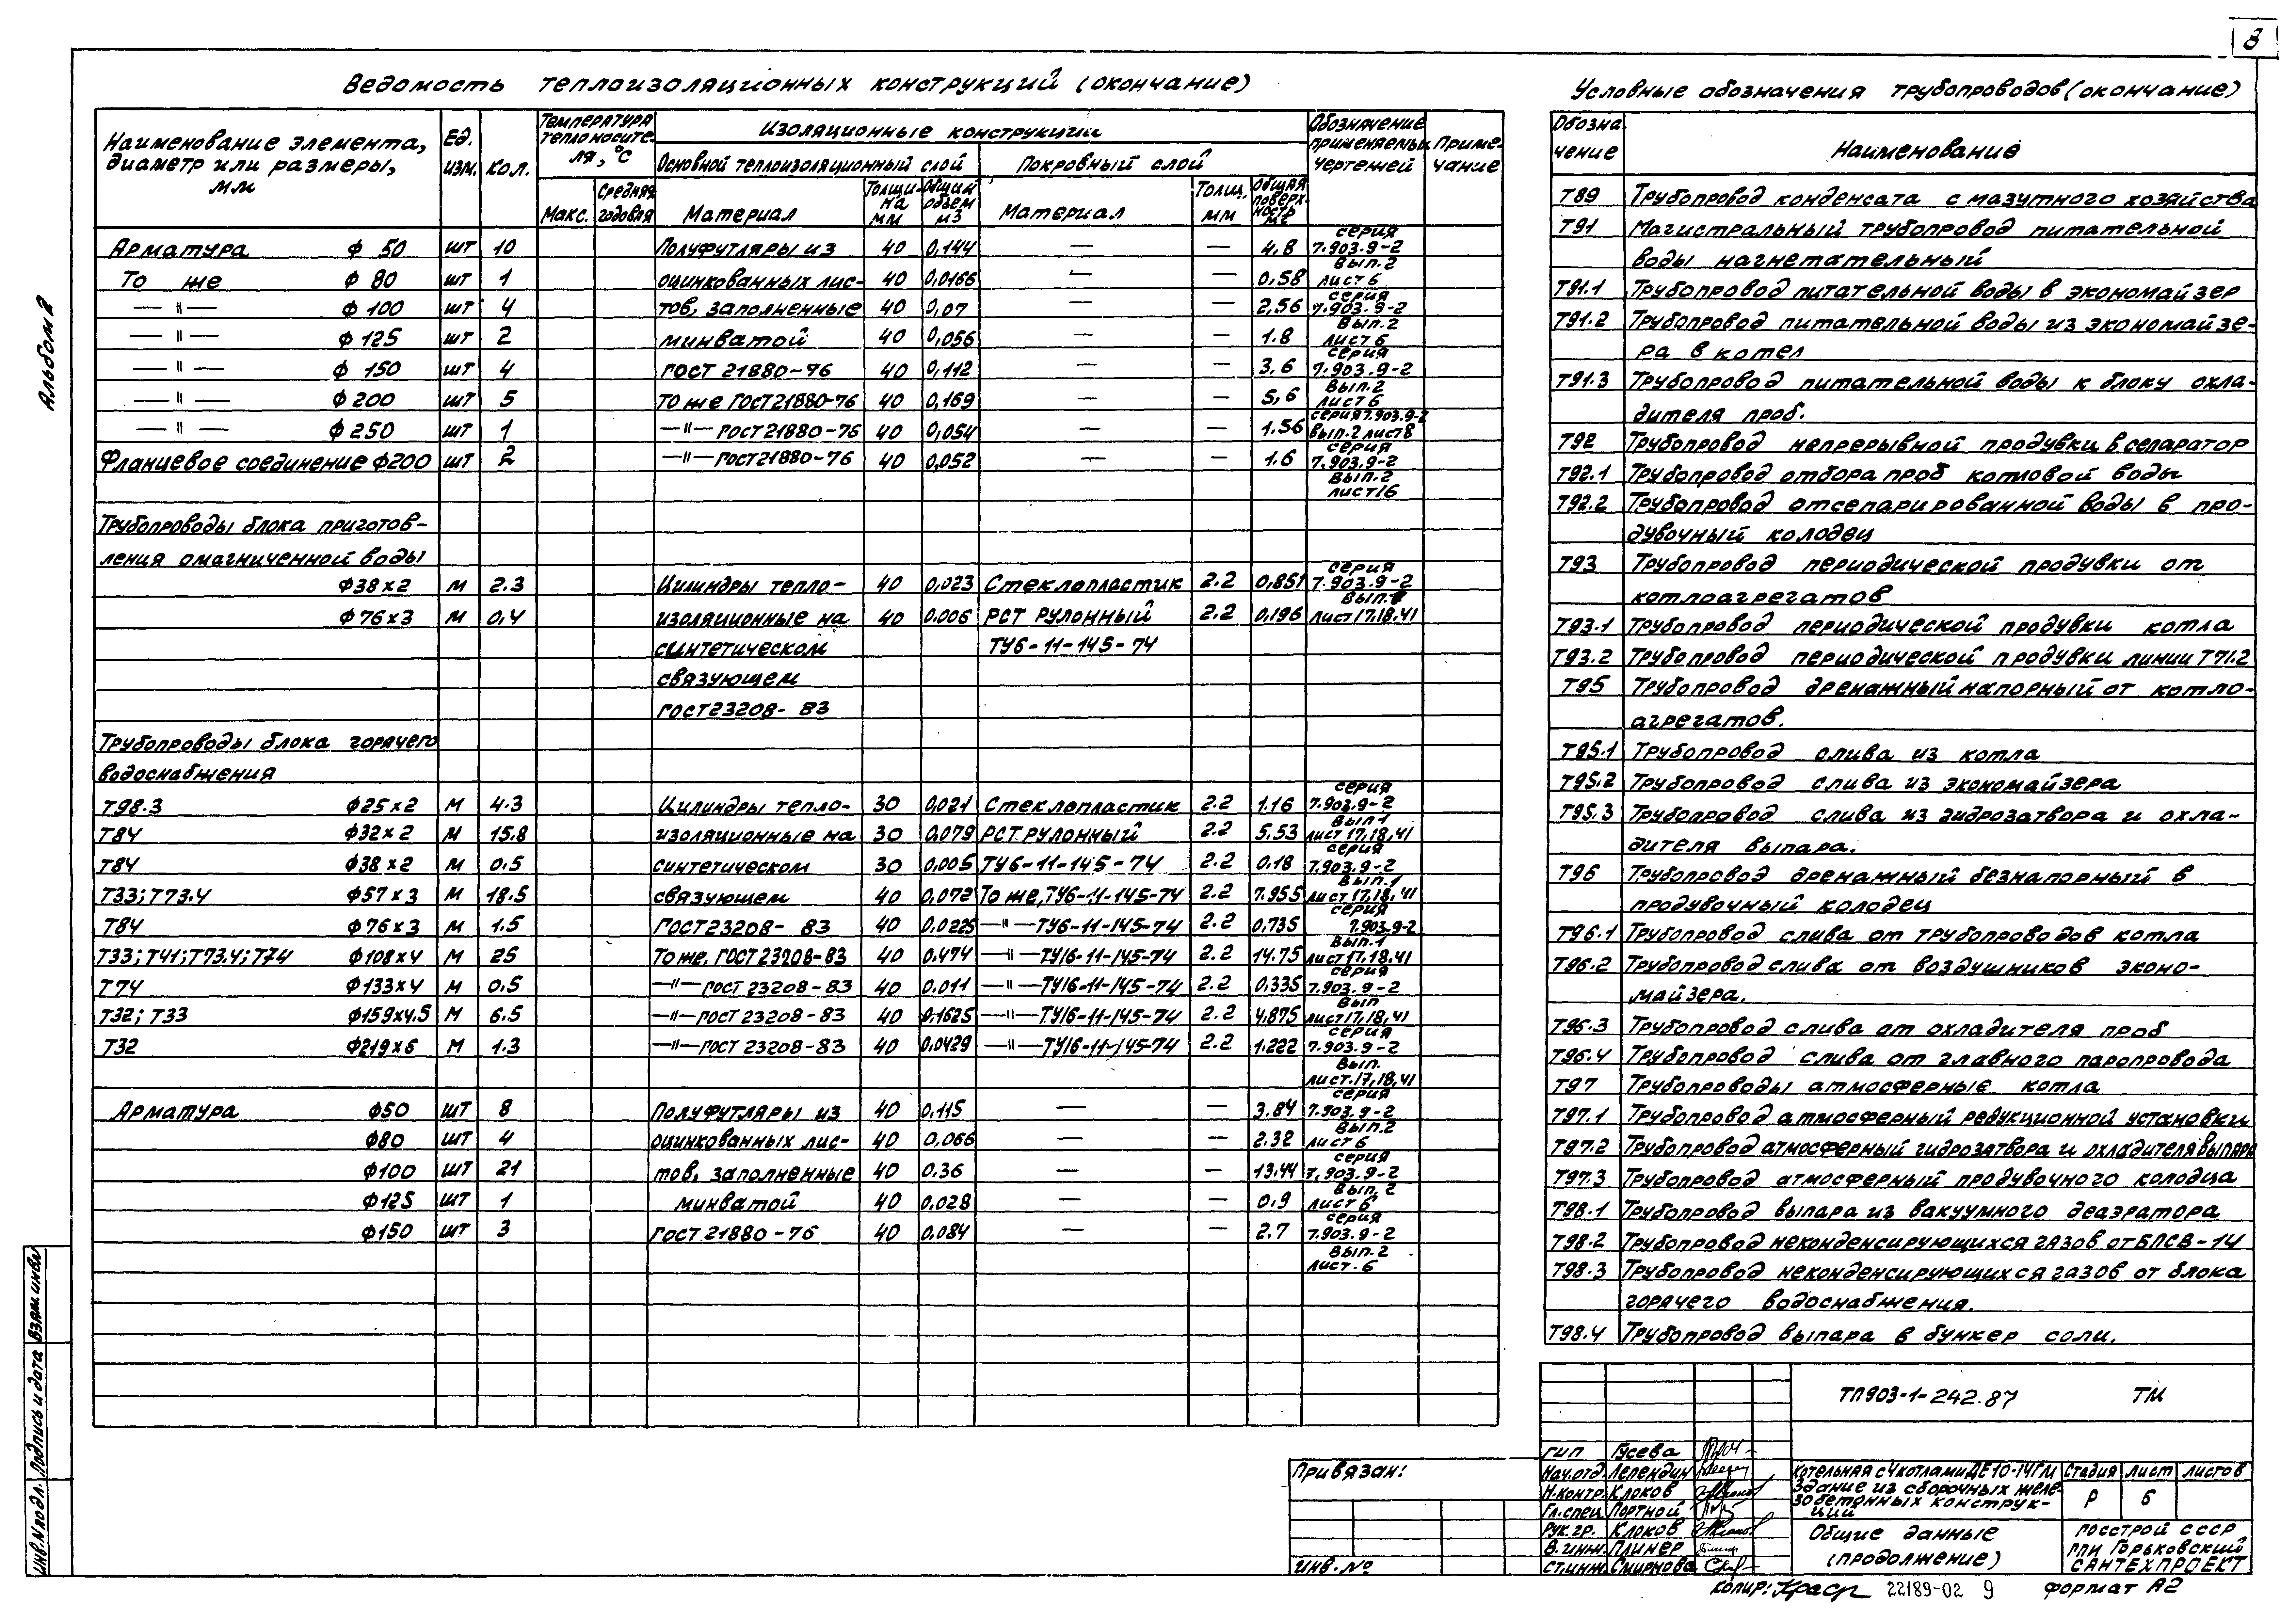 8
Альбом 2
Ведомость теплоизоляционных конструкций (окончание)
Наименование элемента, диаметр или размеры, мм
Ед. изм.
Кол.
Температура теплоносителя, °С
Макс.
Средняя годовая
Изоляционные конструкции
Основной теплоизоляционный слой
Материал
Толщина мм
Общий объем м3
Покровный слой
Материал
Толщ. мм
Общая поверхность м2
Обозначение применяемых чертежей
Примечание
Арматура ф 50 шт 10 Полуфутляры из 40 0,144 — — 4,8 серия 7.903.9-2
То же ф 80 шт 1 оцинкованных лис- 40 0,0166 — — 0,58 Вып.2 лист 6
—"— ф 100 шт 4 тов, заполненные 40 0,07 — — 2,56 серия 7.903.9-2
—"— ф 125 шт 2 минватой 40 0,056 — — 1.8 Вып.2 лист 6
—"— ф 150 шт 4 ГОСТ 21880-76 40 0,112 — — 3,6 серия 7.903.9-2
—"— ф 200 шт 5 То же ГОСТ 21880-76 40 0,169 — — 5,6 Вып.2 лист 6
—"— ф 250 шт 1 —"— ГОСТ 21880-76 40 0,054 — — 1.56 серия 7.903.9-2 вып.2 лист 8
Фланцевое соединение ф200 шт 2 —"— ГОСТ 21880-76 40 0,052 — — 1.6 серия 7.903.9-2
Вып.2 лист 16
Трубопроводы блока приготов-
ления омагниченной воды
ф38х2 м 2.3 Цилиндры тепло- 40 0,023 Стеклопластик 2.2 0,851 серия 7.903.9-2
ф76х3 м 0,4 изоляционные на 40 0.006 РСТ рулонный 2.2 0,196 Вып.1 лист 17,18,41
синтетическом ТУ6-11-145-74
связующем
ГОСТ 23208-83
Трубопроводы блока горячего
водоснабжения
Т98.3 ф25х2 м 4.3 Цилиндры тепло- 30 0,021 Стеклопластик 2.2 1.16 серия 7.903.9-2
Т84 ф32х2 м 15.8 изоляционные на 30 0,079 РСТ рулонный 2.2 5.53 Вып 1 лист 17,18,41
Т84 ф38х2 м 0.5 синтетическом 30 0,005 ТУ6-11-145-74 2.2 0.18 серия 7.903.9-2
Т33; Т73.4 ф57х3 м 18.5 связующем 40 0,072 То же, ТУ6-11-145-74 2.2 7.955 Вып.1 лист 17,18,41
Т84 ф76х3 м 1.5 ГОСТ 23208-83 40 0.0225 —"— ТУ6-11-145-74 2.2 0,735 серия 7.903.9-2
Т33; Т41; Т73.4; Т74 ф108х4 м 25 То же, ГОСТ 23208-83 40 0.474 —"— ТУ16-11-145-74 2.2 14.75 Вып.1 лист 17,18,41
Т74 ф133х4 м 0.5 —"— ГОСТ 23208-83 40 0.011 —"— ТУ16-11-145-74 2.2 0.335 серия 7.903.9-2
Т32; Т33 ф159х4.5 м 6.5 —"— ГОСТ 23208-83 40 0.1625 —"— ТУ16-11-145-74 2.2 4,875 Вып лист 17,18,41
Т32 ф219х6 м 1.3 —"— ГОСТ 23208-83 40 0.0429 —"— ТУ16-11-145-74 2.2 1.222 серия 7.903.9-2
Вып. лист.17,18,41
Арматура ф50 шт 8 Полуфутляры из 40 0,115 — — 3.84 серия 7.903.9-2
ф80 шт 4 оцинкованных лис- 40 0,066 — — 2.32 Вып.2 лист 6
ф100 шт 21 тов, заполненные 40 0.36 — — 13.44 серия 7.903.9-2
ф125 шт 1 минватой 40 0.028 — — 0.9 Вып.2 лист 6
ф150 шт 3 ГОСТ 21880-76 40 0.084 — — 2.7 серия 7.903.9-2
Вып.2 лист.6
Условные обозначения трубопроводов (окончание)
Обозначение
Наименование
Т89 Трубопровод конденсата с мазутного хозяйства
Т91 Магистральный трубопровод питательной
воды нагнетательный
Т91.1 Трубопровод питательной воды в экономайзер
Т91.2 Трубопровод питательной воды из экономайзе-
ра в котел
Т91.3 Трубопровод питательной воды к блоку охла-
дителя проб.
Т92 Трубопровод непрерывной продувки в сепаратор
Т92.1 Трубопровод отбора проб котловой воды
Т92.2 Трубопровод отсепарированной воды в про-
дувочный колодец
Т93 Трубопровод периодической продувки от
котлоагрегатов
Т93.1 Трубопровод периодической продувки котла
Т93.2 Трубопровод периодической продувки линии Т71.2
Т95 Трубопровод дренажный напорный от котло-
агрегатов.
Т95.1 Трубопровод слива из котла
Т95.2 Трубопровод слива из экономайзера
Т95.3 Трубопровод слива из гидрозатвора и охла-
дителя выпара.
Т96 Трубопровод дренажный безнапорный в
продувочный колодец
Т96.1 Трубопровод слива от трубопроводов котла
Т96.2 Трубопровод слива от воздушников эконо-
майзера.
Т96.3 Трубопровод слива от охладителя проб
Т96.4 Трубопровод слива от главного паропровода
Т97 Трубопроводы атмосферные котла
Т97.1 Трубопровод атмосферный редукционной установки
Т97.2 Трубопровод атмосферный гидрозатвора и охладителя выпара
Т97.3 Трубопровод атмосферный продувочного колодца
Т98.1 Трубопровод выпара из вакуумного деаэратора
Т98.2 Трубопровод неконденсирующихся газов от БПСВ-14
Т98.3 Трубопровод неконденсирующихся газов от блока
горячего водоснабжения.
Т98.4 Трубопровод выпара в бункер соли.
Инв.N подл. Подпись и дата Взам инв N
Привязан:
Инв. №
ТП903-1-242.87 ТМ
ГИП Гусева
Нач.отд. Лепендин
Н.контр. Клоков
Гл.спец Портной
Рук.гр. Клоков
В.инж. Плинер
Ст.инж. Смирнова
Котельная с 4 котлами ДЕ10-14ГМ
Здание из сборочных желе-
зобетонных конструк-
ций
Стадия Лист Листов
Р 6
Общие данные
(продолжение)
Госстрой СССР
ГПИ Горьковский
САНТЕХПРОЕКТ
Копир: Краср 22189-02 9 формат А2